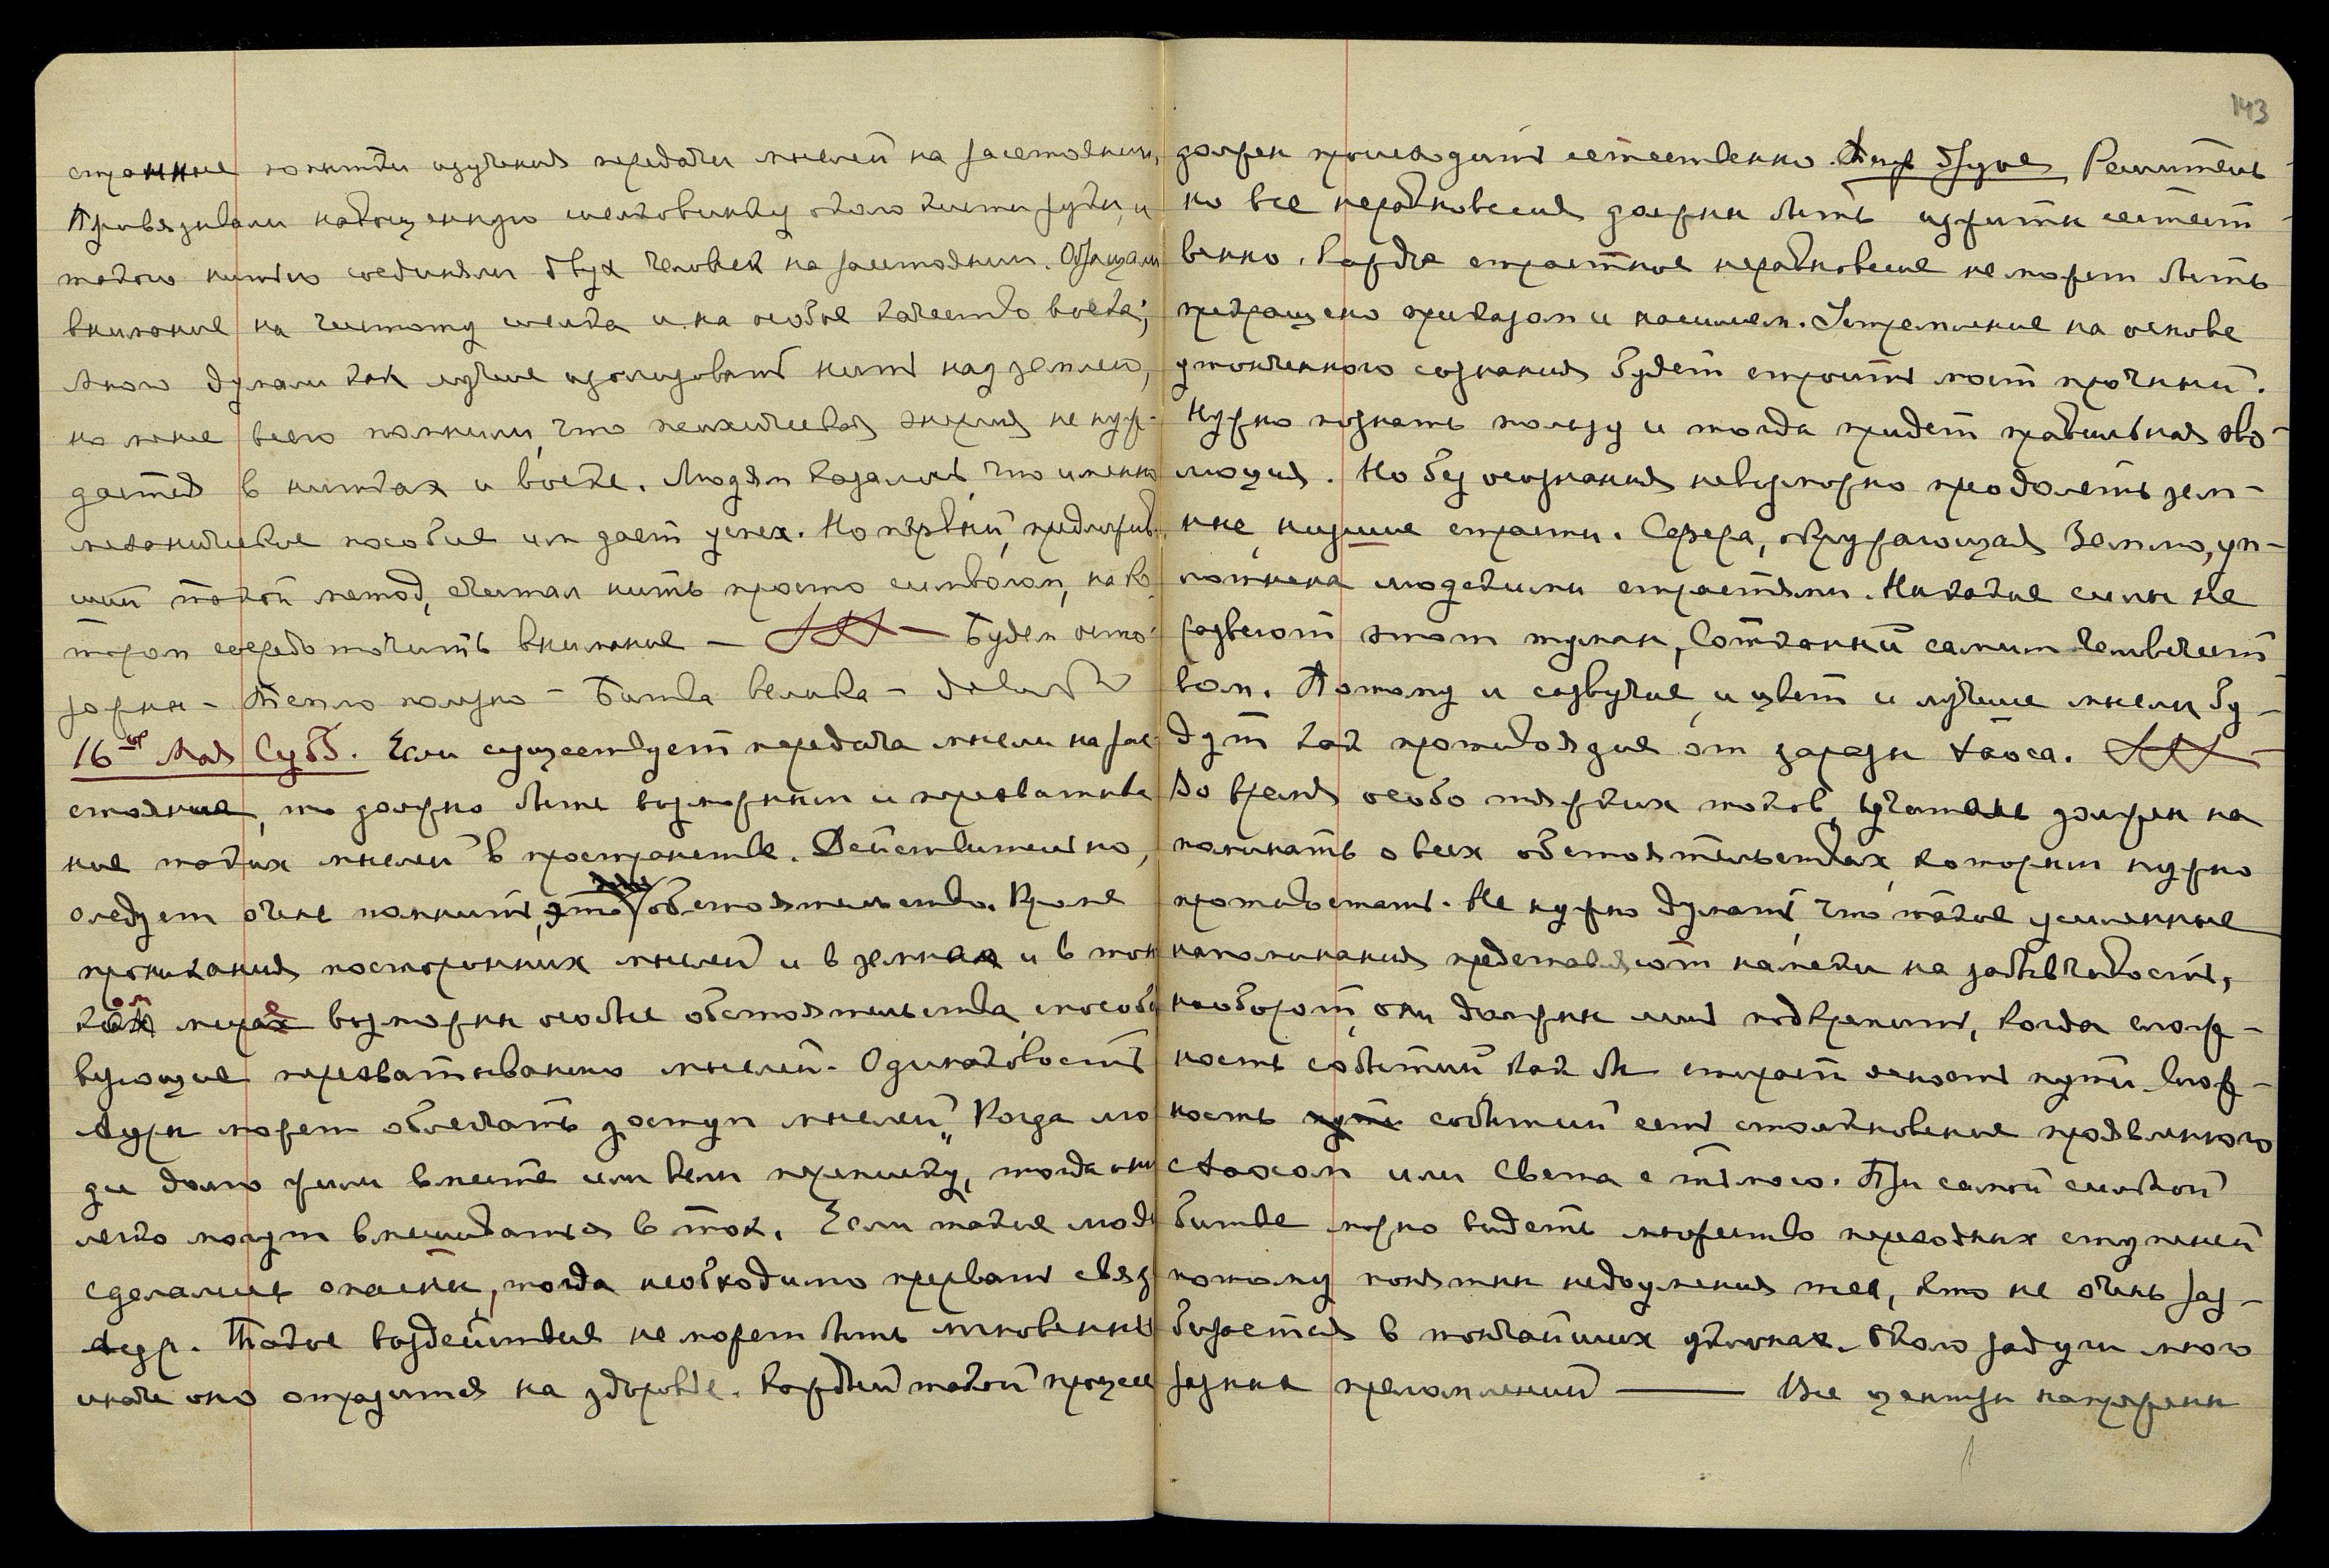 странные попытки изучения передачи мыслей на расстоянии,
Привязывали навощенную шелковинку около кисти руки, и
такою нитью соединяли двух человек на расстоянии. Обращали
внимание на чистоту шелка и на особое качество воска;
много думали как лучше изолировать нить над землею,
но мене всего помнили, что психическая энергия не нуж-
дается в нитках и воске. Людям казалось, что именно
механическое пособие им дает успех. Но первый, предложив-
ший такой метод, считал нить просто символом, на ко
тором сосредоточить внимание — Будем осто-
рожны – Тепло полезно – Битва велика – довольно
16ое Мая Субб. Если существует передача мысли на рас
стояние, то должно быть возможным и перехватыва
ние таких мыслей в пространстве. Действительно,
следует очень помнить, это обстоятельство. Кроме
проникания посторонних мыслей и в земных и в тон
ком мерах возможны особые обстоятельства, способс
вующие перехватыванию мыслей. Одинаковость
ауры может облегчать доступ мыслей„ Когда лю
ди долго жили вместе или вели переписку, тогда они
легко могут вмешиваться в ток. Если такие люди
сделались опасны, тогда необходимо прервать связь
аур. Такое воздействие не может быть мгновенны
иначе оно отразится на здоровье. Каждый такой процесс
143
должен происходить естественно. Решитель
но все нервновесия должны быть изжиты естест-
венно. Каждое страстное неравновесие не может быть
прекращено приказом и насилием. Устремление на основе
утонченного сознания будет строить мост прочный.
Нужно познать пользу и тогда придет правильная эво-
люция. Но без осознания невозможно преодолеть зем-
ные, низшие страсти. Сфера, окружающая Землю, уп-
лотнена людскими страстями. Никакие силы не
развеют этот туман, сотканный самим человечест
вом. Потому и созвучие, и цвет и лучшие мысли бу-
дут как противоядие от заразы хаоса.
Во время особо тяжких токов, Учитель должен на
поминать о всех обстоятельствах, которым нужно
противостать. Не нужно думать, что такие усиленные
напоминания представляют намеки на забывчивость,
наоборот, они должны лишь подкрепить, когда слож-
ность событий как бы стирает ясность пути. Слож-
ность пути событий есть столкновение проявленного
с Хаосом или Света с тьмою. При самой сильной
битве можно видеть множество переходных ступеней
потому понятны недоумения тех, кто не очень раз-
бирается в тончайших уклонах. Около радуги много
разных преломлений —— Все центры напряжены